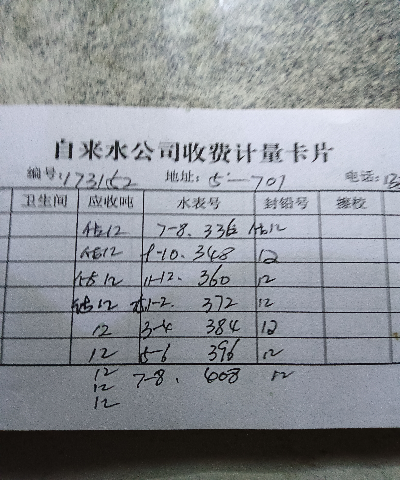 自来水公司收费计量卡片
编号: 173152 地址: 5-701 电话:
卫生间 应收吨 水表号 封铅号 擦校
估12 7-8. 336 估12
估12 9-10. 348 12
估12 11-12. 360 12
估12 1-2. 372 12
12 3-4 384 12
12 5-6 396 12
12 7-8. 408 12
12
12